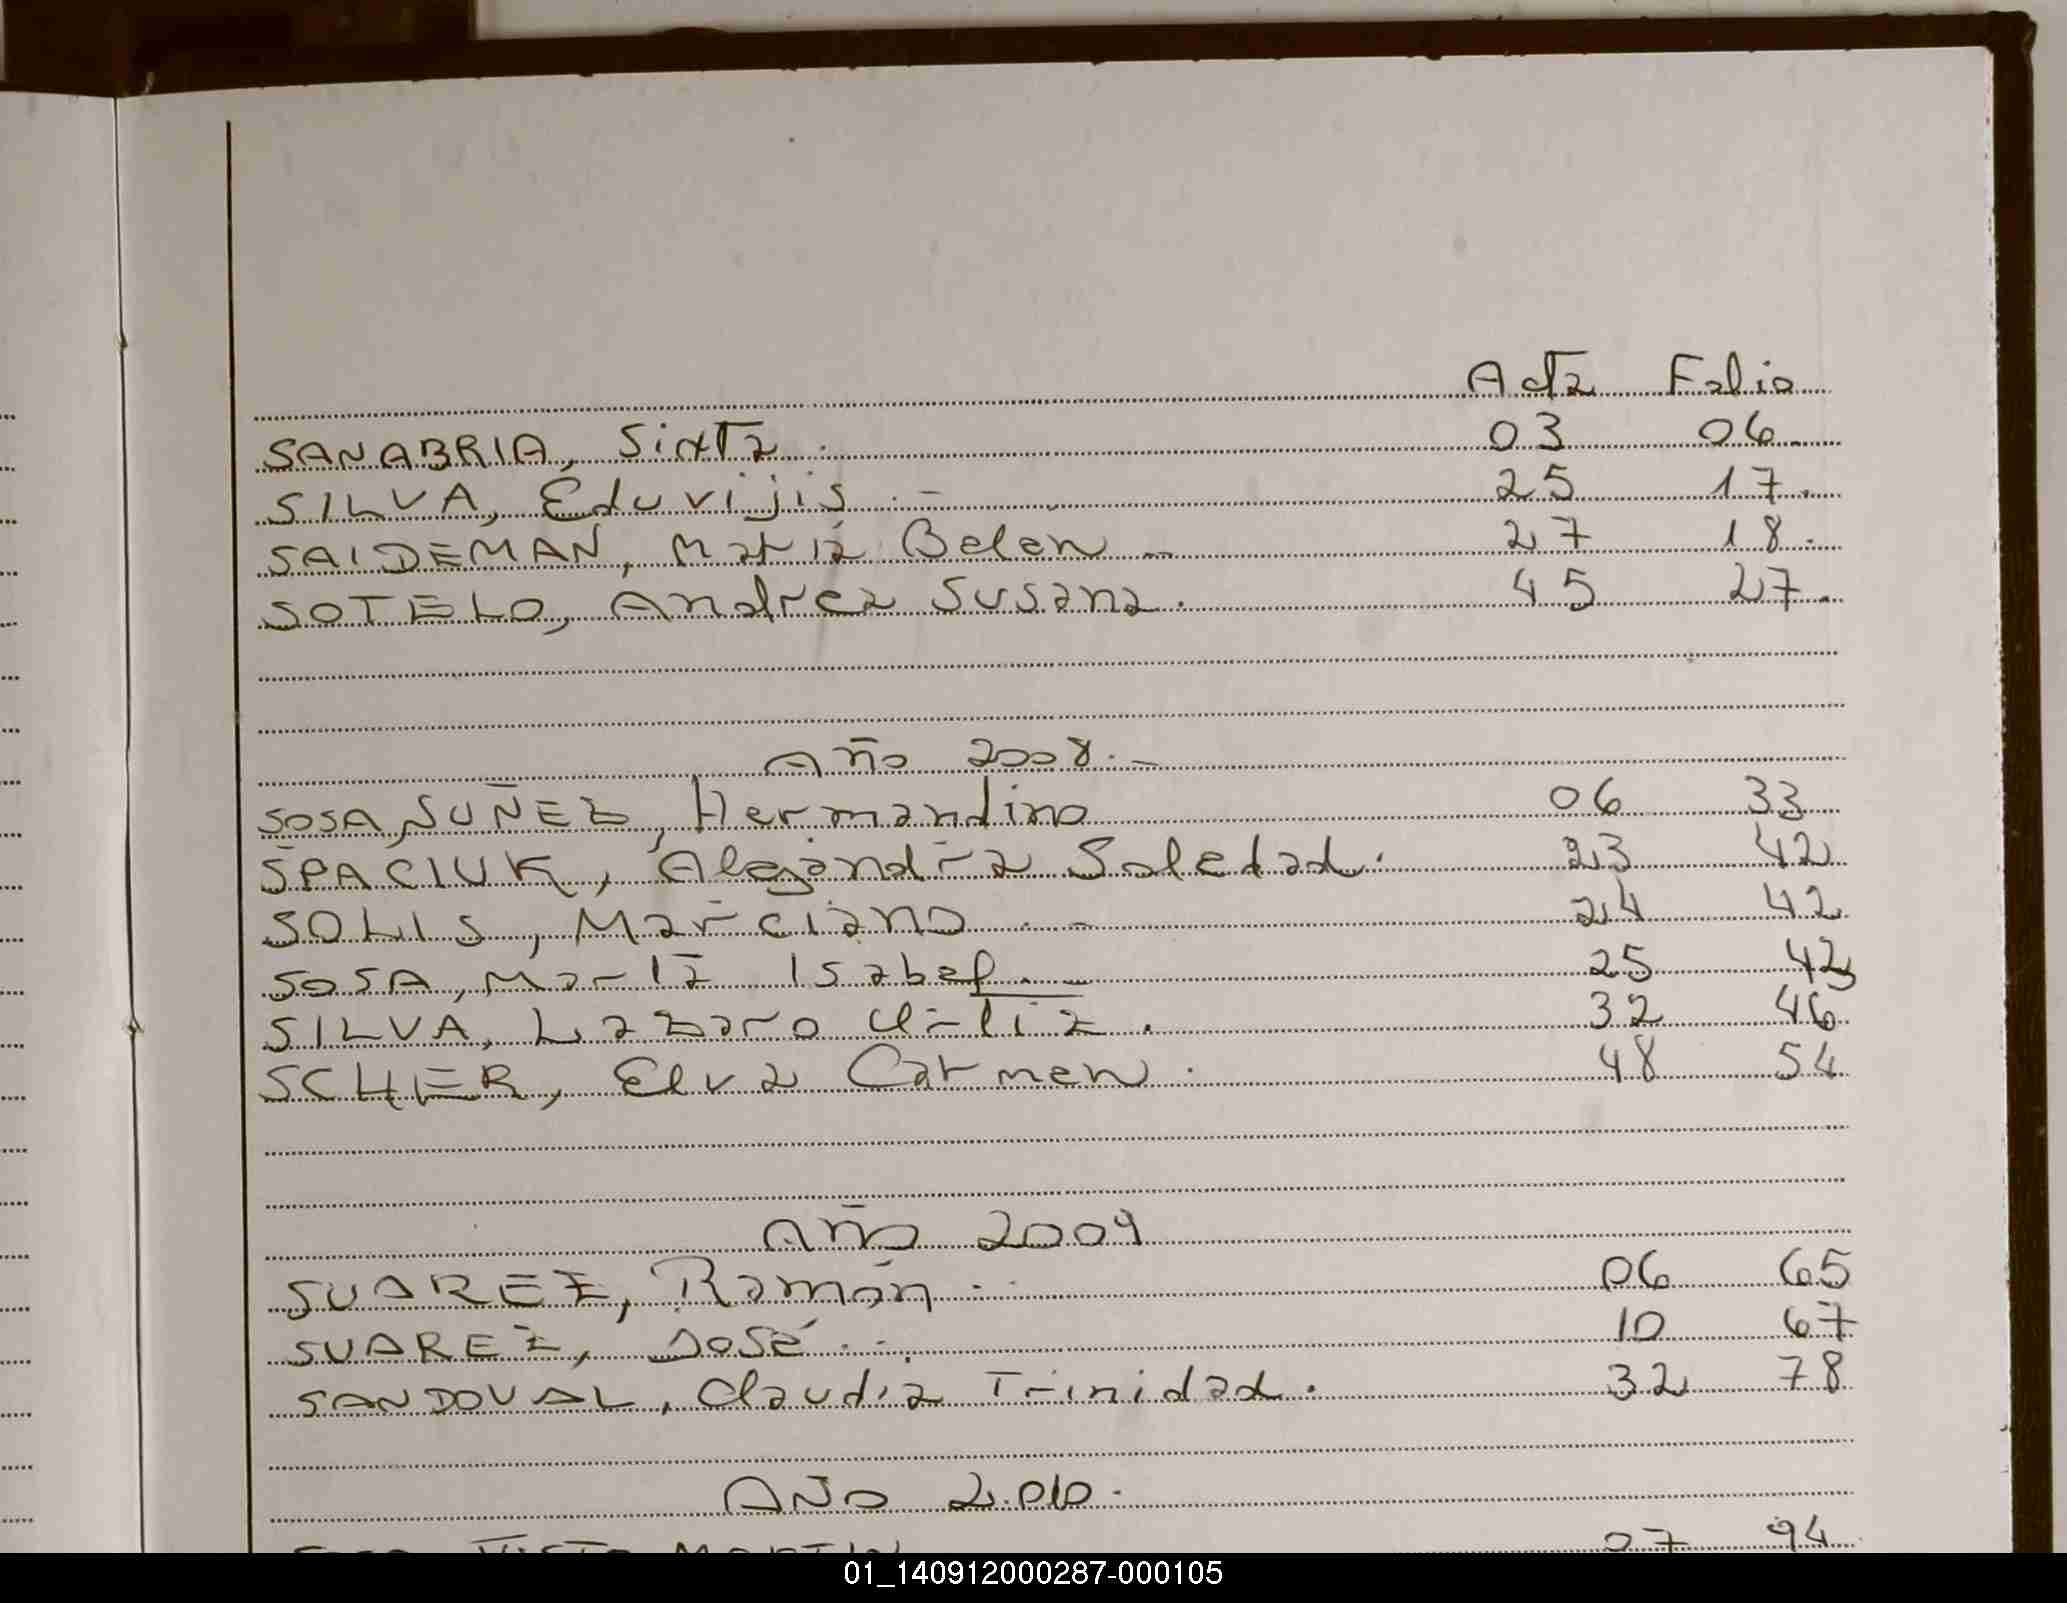 Acta Folio
SANABRIA, Sixta. 03 06.
SILVA, Eduvijis.- 25 17.
SAIDEMAN, María Belen - 27 18.
SOTELO, Andrea Susana. 45 27.
Año 2008.-
SOSA, NUÑEZ, Hermandino 06 33
SPACIUK, Alejandra Soledad. 23 42
SOLIS, Marciano.- 24 42
SOSA, María Isabel.- 25 43
SILVA, Lazaro 32 46
SCHER, Elva Carmen. 48 54
Año 2009
SUAREZ, Ramón.- 06 65
SUAREZ, José.-. 10 67
SANDOVAL, Claudia Trinidad. 32 78
AÑO 2.010.
07 94
01_140912000287-000105